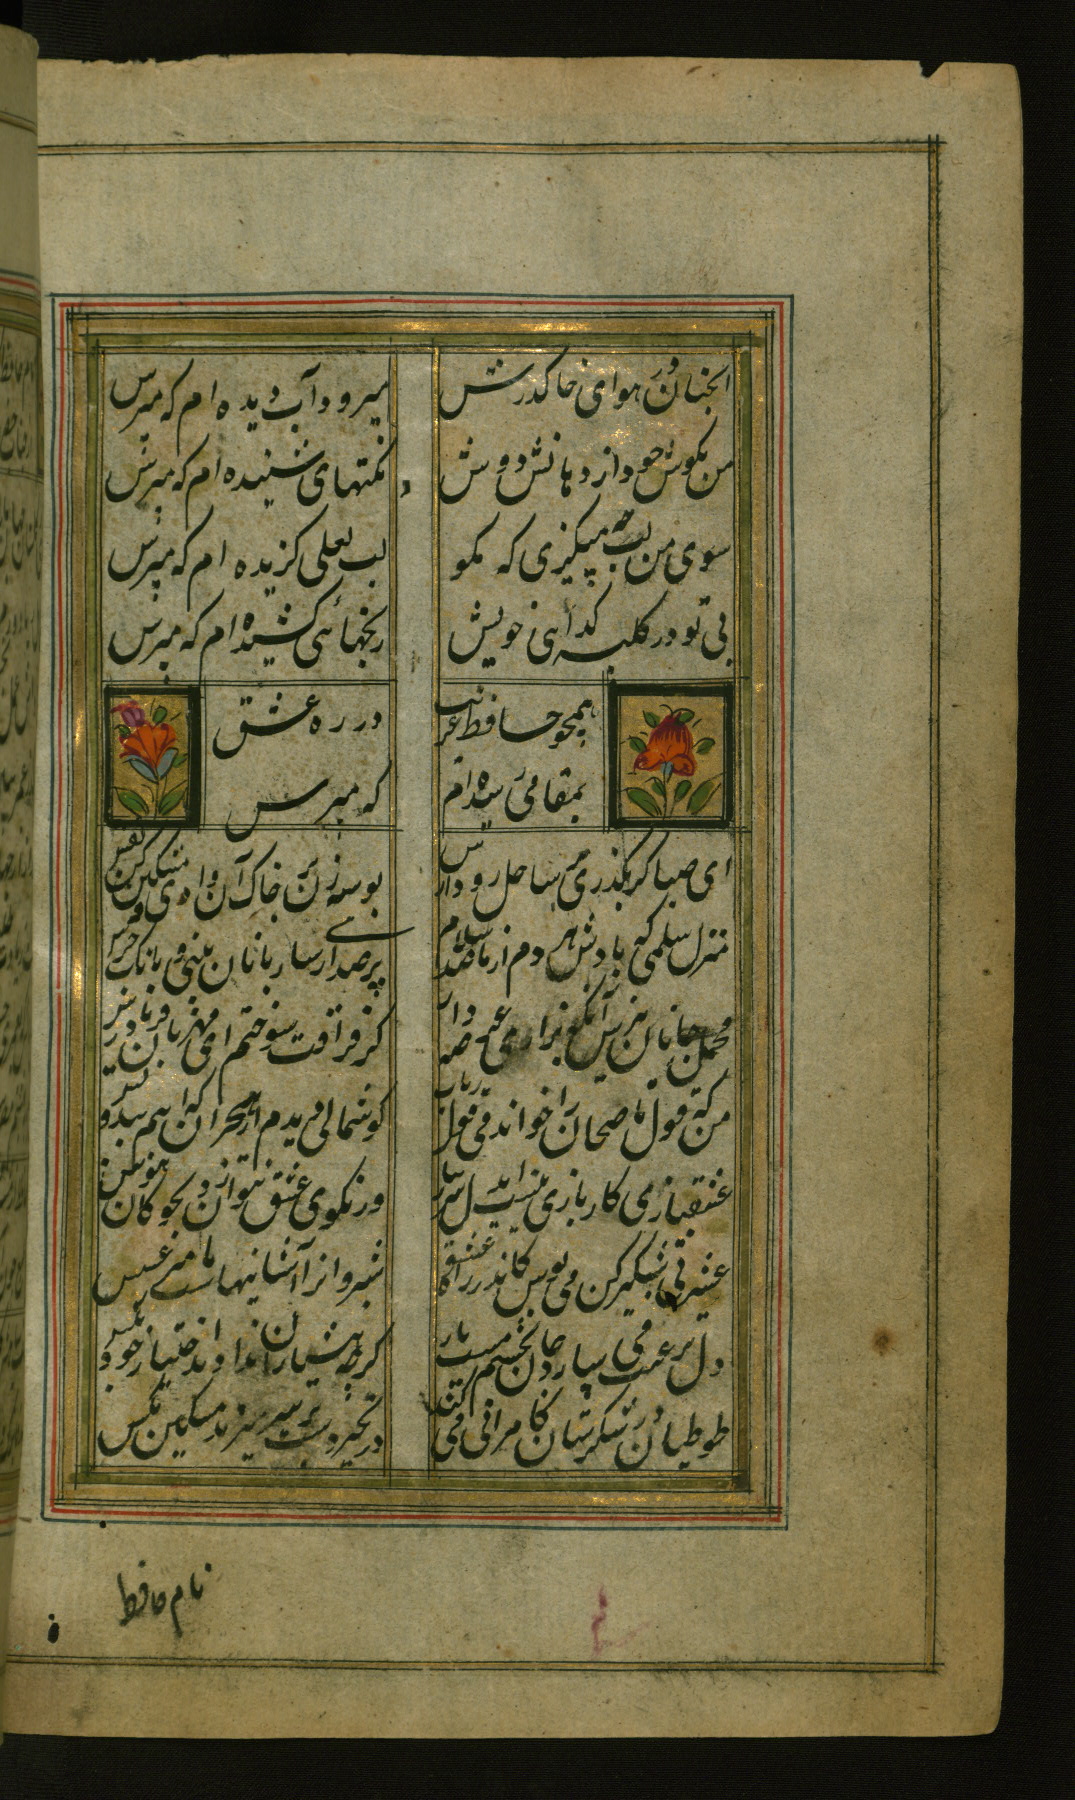 آنچنان در هوای خاک درش میرود آب دیده ام که مپرس
من بگوش خود از دهانش دوش نکتهای شنیده ام که مپرس
سوی من لب چه میگزی که مگو لب لعلی گزیده ام که مپرس
بی تو در کلبه گدائی خویش رنجهائی کشیده ام که مپرس
همچو حافظ غریب در ره عشق
بمقامی رسیده ام که مپرس
ای صبا گر بگذری بر ساحل رود ارس بوسه زن بر خاک آن وادی و مشکین کن نفس
منزل سلمی که بادش هر دم از ما صد سلام پر صدای ساربانان بینی و بانک جرس
محمل جانان ببوس آنگه بزاری عرضه دار کز فراقت سوختم ای مهربان فریاد رس
من که قول ناصحان را خواندمی قول رباب گوشمالی دیدم از هجران که اینم پند بس
عشقبازی کار بازی نیست ای دل سر بباز ورنه گوی عشق نتوان زد بچوگان هوس
عشرت شبگیر کن می نوش کاندر راه عشق شبروانرا آشنائیهاست با میر عسس
دل برغبت می سپارد جان بچشم مست یار گرچه هشیاران ندادند اختیار خود بکس
طوطیان در شکرستان کامرانی می کنند در تحیر دست بر سر میزند مسکین مگس
نام حافظ